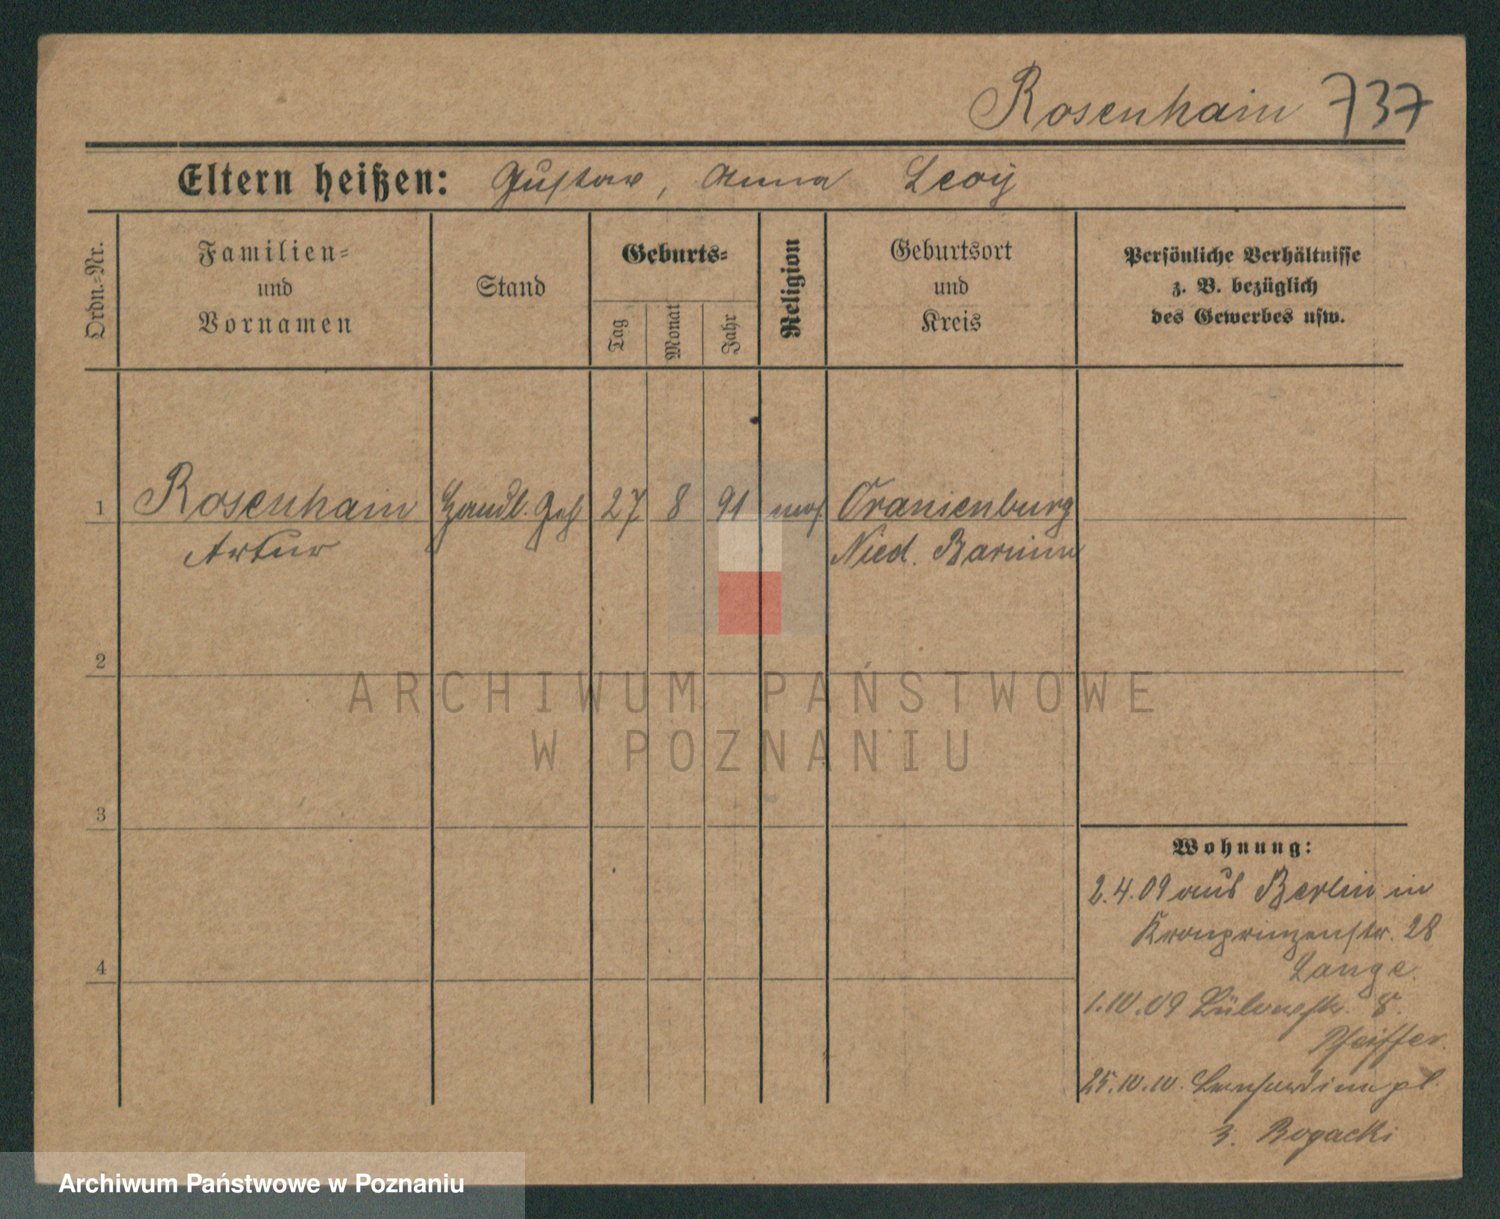 Rosenhain 737
Eltern heißen: Gustav, Anna Levÿ
Ordn.-Nr.
Familien-
und
Vornamen
Stand
Geburts-
Tag
Monat
Jahr
Religion
Geburtsort
und
Kreis
Persönliche Verhältnisse
z. B. bezüglich
des Gewerbes usw.
1 Rosenhain Handl. Geh 27 8 91 mos Oranienburg
Artur Nied. Barnim
2
ARCHIWUM PAŃSTWOWE
W POZNANIU
3
Wohnung:
2.4.09 aus Berlin in
Kronprinzenstr. 28
Lange.
4
1.10.09 Bülowstr. 8.
Pfeiffer.
25.10.10.
3. Bogacki
Archiwum Państwowe w Poznaniu